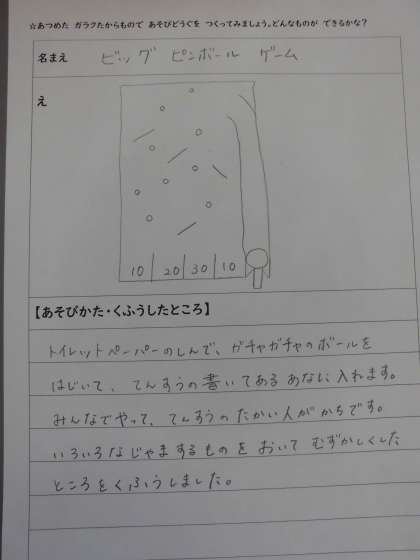 ☆あつめた ガラクたからもので あそびどうぐを つくってみましょう。どんなものが できるかな？
名まえ ビッグ ピンボール ゲーム
え
10 20 30 10
【あそびかた・くふうしたところ】
トイレットペーパーのしんで、ガチャガチャのボールを
はじいて、てんすうの書いてある あなに入れます。
みんなでやって、てんすうの たかい人が かちです。
いろいろな じゃまするものを おいて むずかしくした
ところを くふうしました。